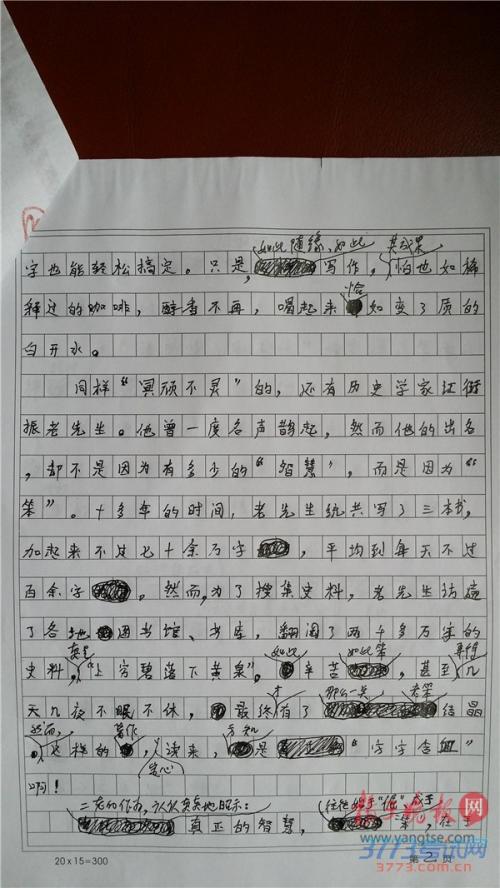 如此随缘、如此 其成果
字也能轻松搞定。只是,写作,怕也如稀
恰
释过的咖啡,醇香不再,喝起来如变了质的
白开水。
同样“冥顽不灵”的,还有历史学家江衍
振老先生。他曾一度名声鹊起,然而他的出名
,却不是因为有多少的“智慧”,而是因为“
笨”。十多年的时间,老先生统共写了三本书,
加起来不过七十余万字,平均到每天不过
百余字。然而,为了搜集史料,老先生访遍
了各地图书馆、书库,翻阅了两千多万字的
真是 如此 如此笨
史料,“上穷碧落下黄泉”。辛苦,甚至几
才 那么一点
天几夜不眠不休,最终有了结晶
然而, 著作 方知
,这样的,人读来,是“字字含血”
安心
啊!
真正的智慧,“笨”,在于
20×15=300
第2页
www.yangtse.com
3773考试网
3773.com.cn